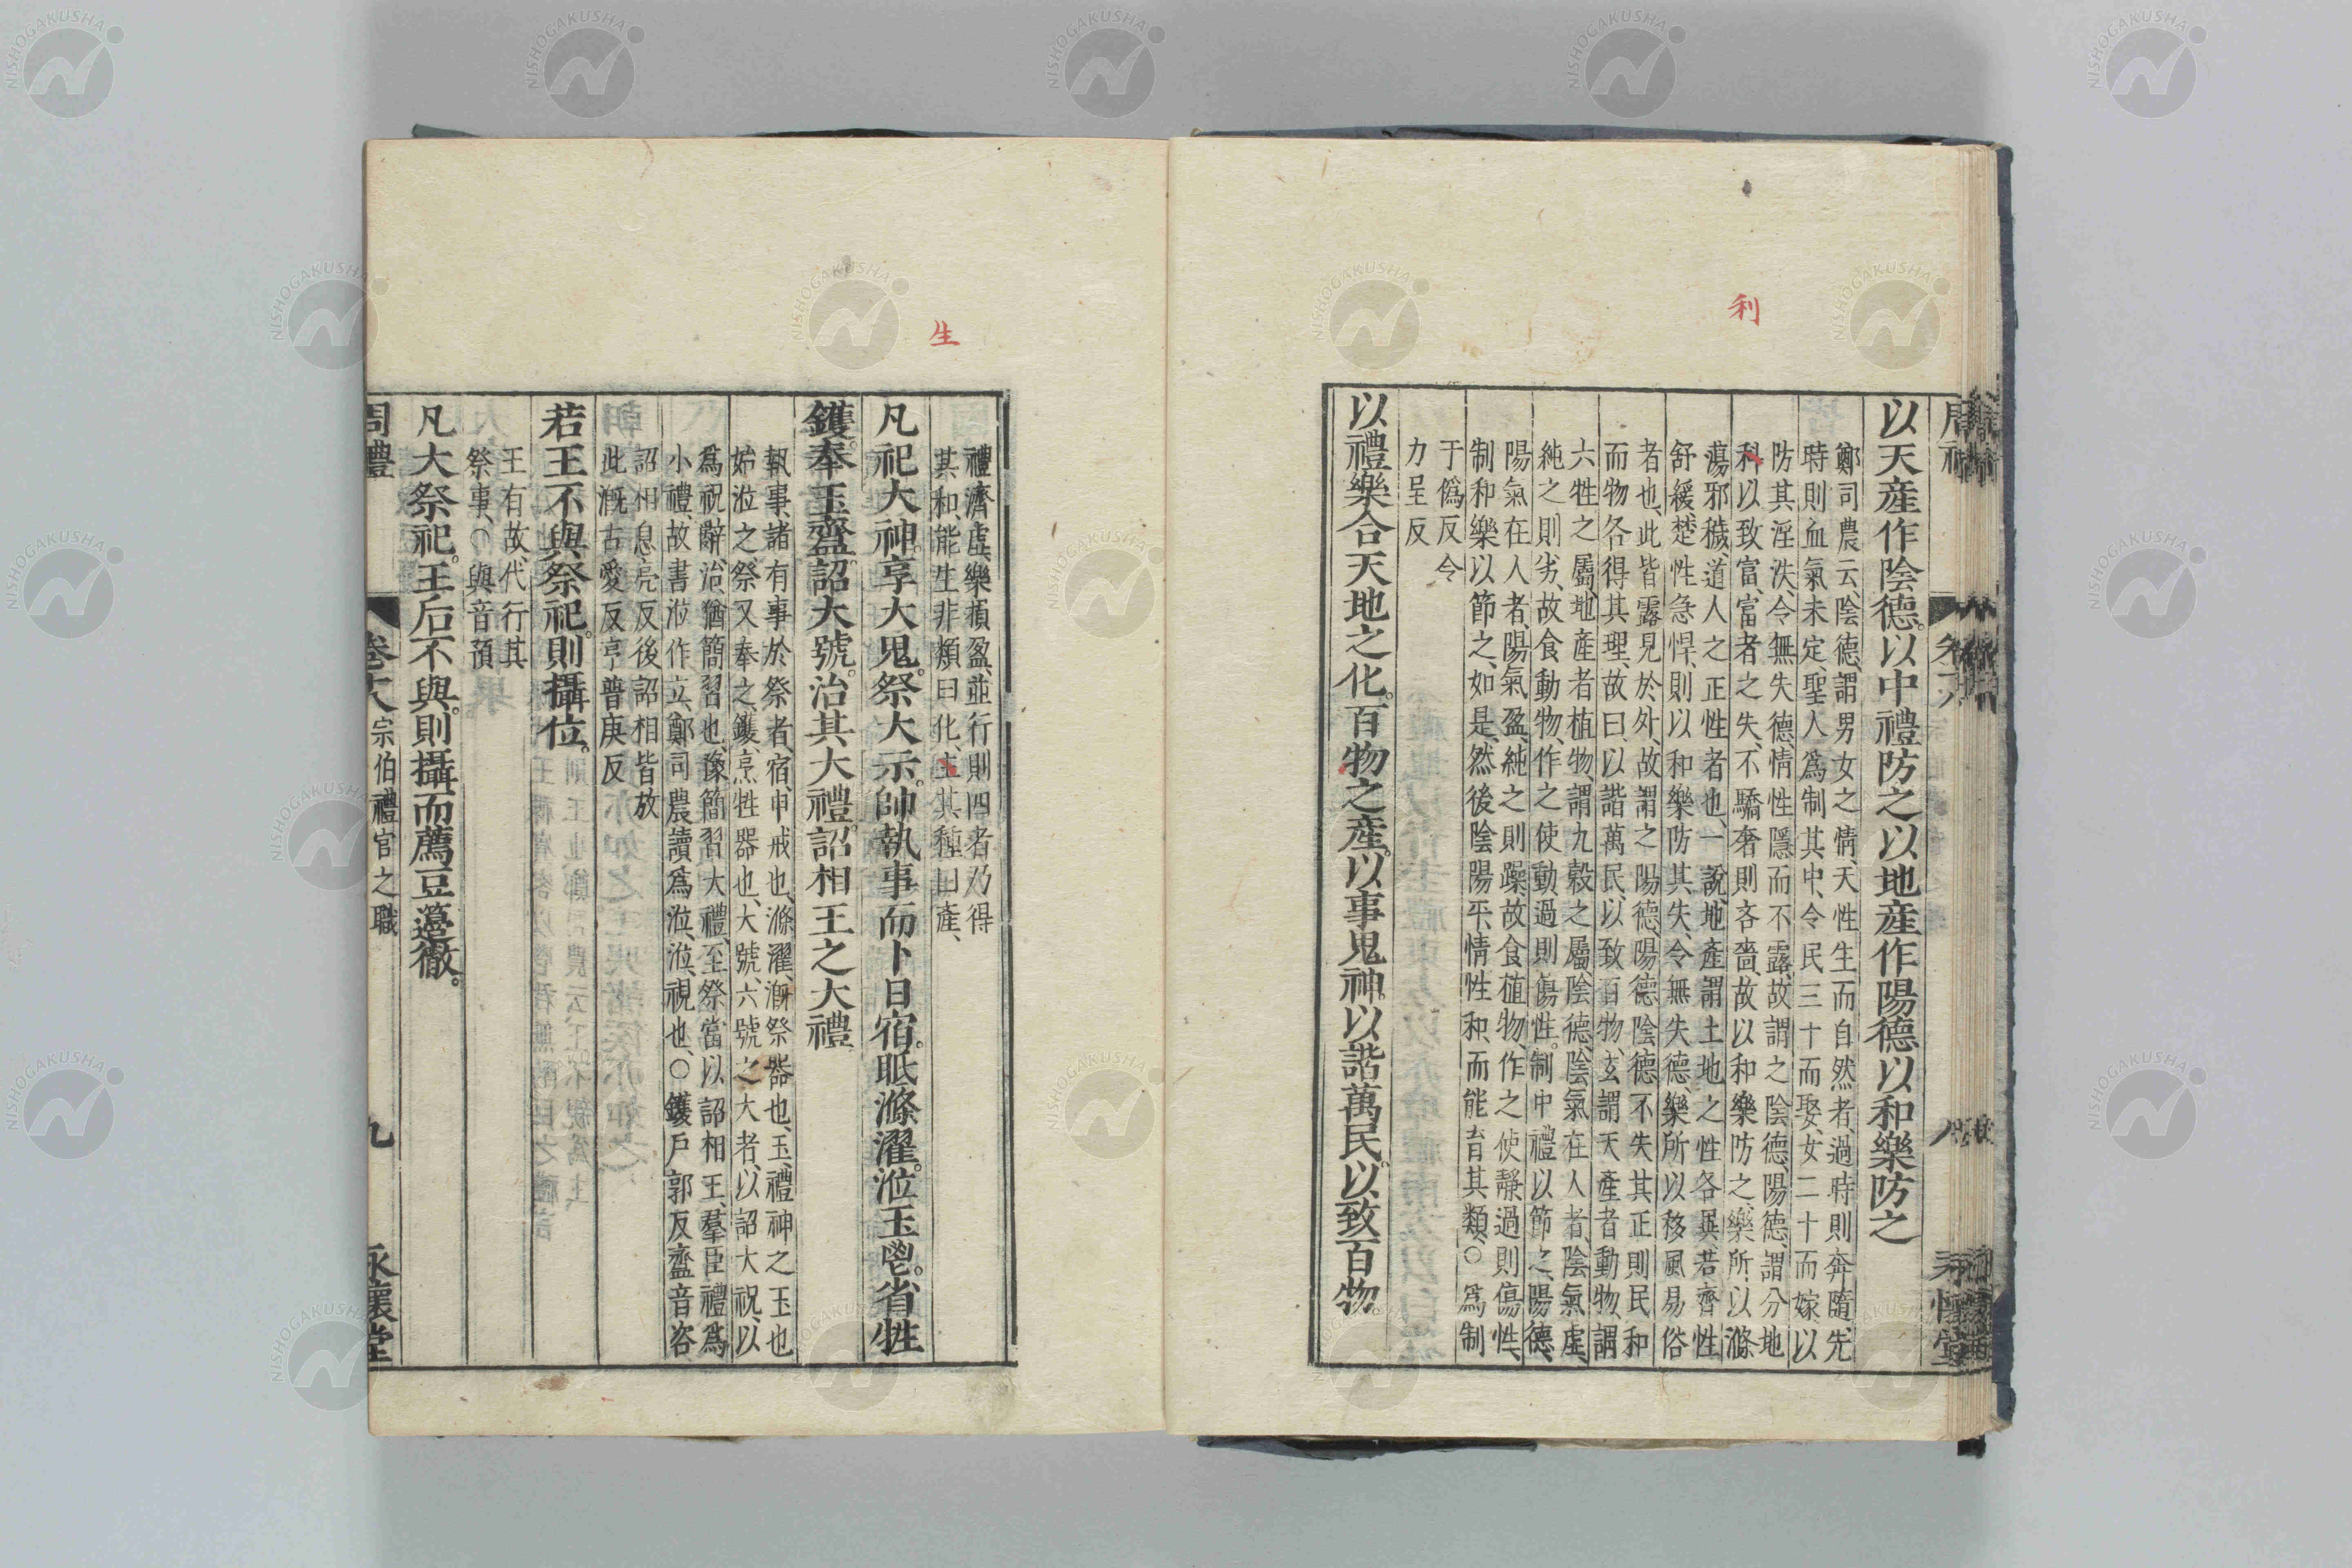 利
以天産作陰德。以中禮防之以地産作陽德以和樂防之
鄭司農云、陰德、謂男女之情、天性生而自然者、過時則奔隨、先
時則血氣未定、聖人爲制其中、令民三十而娶女二十而嫁以
防其淫泆、令無失德、情性隱而不露、故謂之陰德、陽德、謂分地
科以致富、富者之失、不驕奢則吝嗇、故以和樂防之、樂所以滌
蕩邪穢、道人之正性者也、一說、地產謂土地之性各異若齊性
舒緩楚性急悍、則以和樂防其失、令無失德、樂所以移風易俗
者也、此皆露見於外、故謂之陽德、陽德陰德不失其正則民和
而物各得其理、故曰、以諧萬民、以致百物、玄謂天產者動物、謂
六牲之屬、地産者植物、謂九榖之屬、陰德、陰氣在人者、陰氣虛、
純之則劣、故食動物、作之使動、過則傷性。制中禮以節之、陽德、
陽氣在人者、陽氣盈、純之則躁、故食植物、作之使靜、過則傷性、
制和樂以節之、如是、然後陰陽平、情性和、而能育其類、○爲制
于僞反令
力呈反
以禮樂合天地之化。百物之産。以事鬼神。以諧萬民。以致百物。
生
禮濟虛樂損盈、並行則四者乃得
其和、能生非類曰化、主其種曰產、
凡祀大神。享大鬼。祭大示。帥執事而卜日宿。眡滌濯。涖玉鬯。省牲
鑊。奉玉齍。詔大號。治其大禮。詔相王之大禮
執事、諸有事於祭者、宿、申戒也、滌濯、溉祭器也、玉、禮神之玉也
始涖之、祭又奉之、鑊、烹牲器也、大號、六號之大者、以詔大祝、以
爲祝辭、治、猶簡習也、豫簡習大禮、至祭、當以詔相王、羣臣禮爲
小禮、故書涖作立、鄭司農讀爲涖、涖、視也、○鑊戶郭反齍音咨
詔相息亮反後詔相皆放
此溉古愛反亨普庚反
若王不與祭祀。則攝位。
王有故、代行其
祭事、○與音預
凡大祭祀。王后不與。則攝而薦豆籩徹。
周禮 卷六 宗伯禮官之職 九 永懷堂